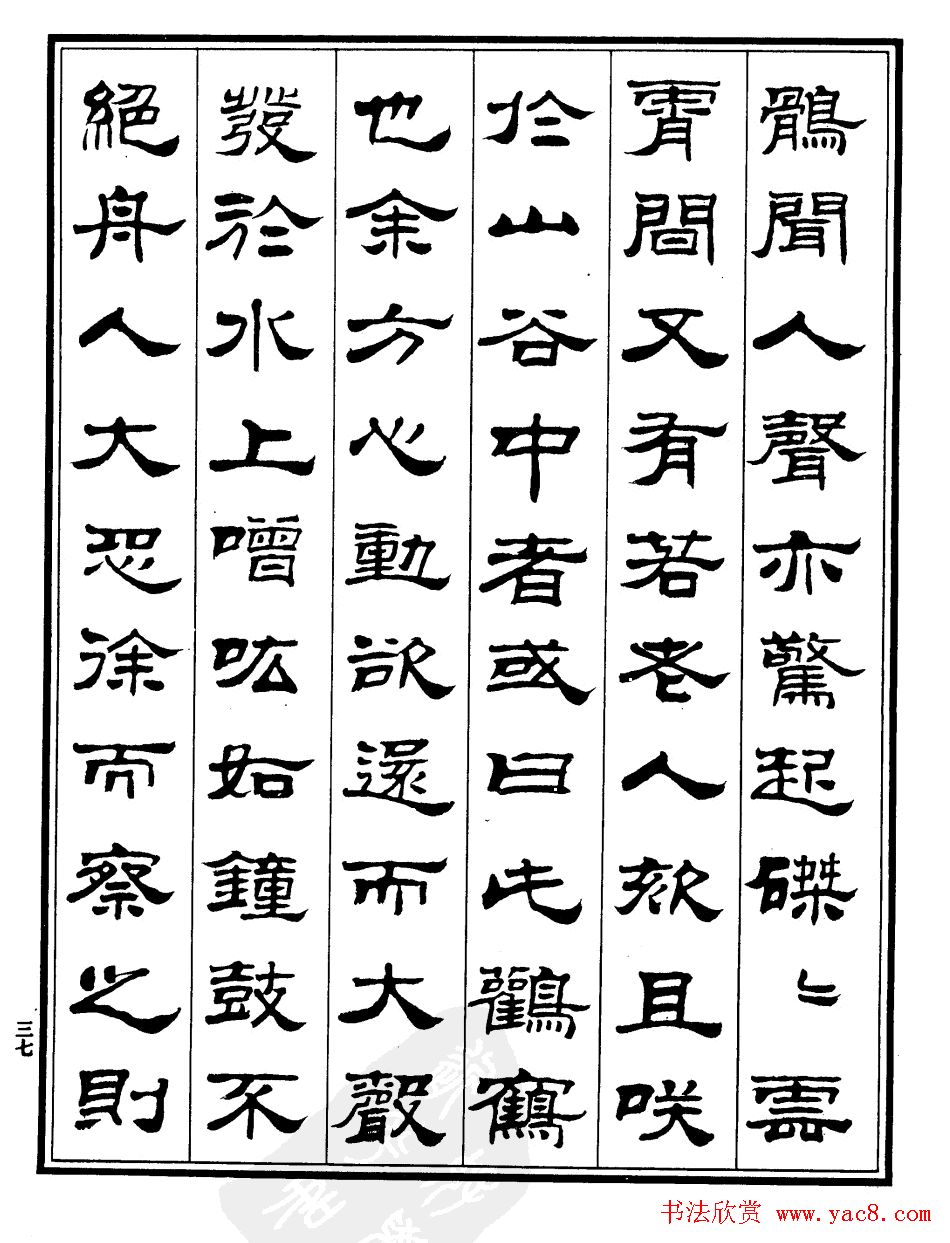 鶻聞人聲亦驚起磔〻雲
霄間又有若老人欬且咲
於山谷中者或曰此鸛鶴
也余方心動欲還而大聲
發於水上噌吰如鐘鼓不
絕舟人大恐徐而察之則
三七
书法欣赏 www.yac8.com